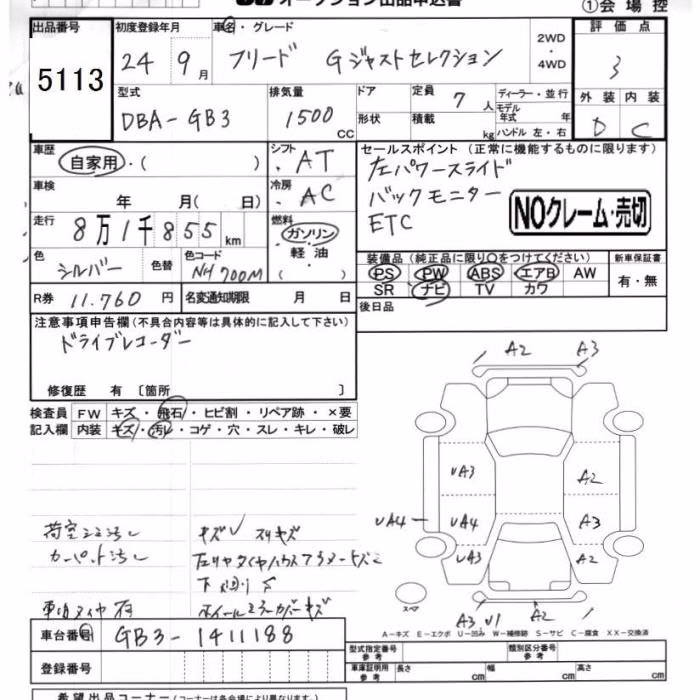 オークション出品申込書
①会場控
出品番号
5113
初度登録年月
24 9月
車名・グレード
フリード Gジャストセレクション
2WD
・
4WD
評価点
3
型式
DBA-GB3
排気量
1500
CC
ドア
形状
定員 7 人
積載 kg
ディーラー・並行
モデル年式 年
ハンドル 左・右
外装 内装
D C
車歴
自家用・( )
シフト
・AT
セールスポイント(正常に機能するものに限ります)
左パワースライド
バックモニター
ETC
NOクレーム・売切
車検
年 月( 日)
冷房
・AC
走行
8万1千855km
燃料
ガソリン
軽油
・( )
色
シルバー
色替
色コード
NH700M
装備品(純正品に限り○をつけてください)
PS PW ABS エアB AW
SR ナビ TV カワ
新車保証書
有・無
R券 11.760 円
名変通知期限 月 日
後日品
注意事項申告欄(不具合内容等は具体的に記入して下さい)
ドライブレコーダー
修復歴 有 〔箇所 〕
検査員
記入欄
FW キズ・飛石・ヒビ割・リペア跡・×要
内装 キズ・汚レ・コゲ・穴・スレ・キレ・破レ
A2 A3
UA3 A2
UA4 UA4 A3
UA3 A2
スペア
A3 U1 A2
カーペット汚レ
A-キズ E-エクボ U-凹み W-補修跡 S-サビ C-腐食 XX-交換済
車台番号
GB3-1411188
登録番号
型式指定番号
参考
類別区分番号
参考
車庫証明用
参考
長さ cm 幅 cm 高さ cm
希望出品コーナー(コーナーは各会場により異なります。)